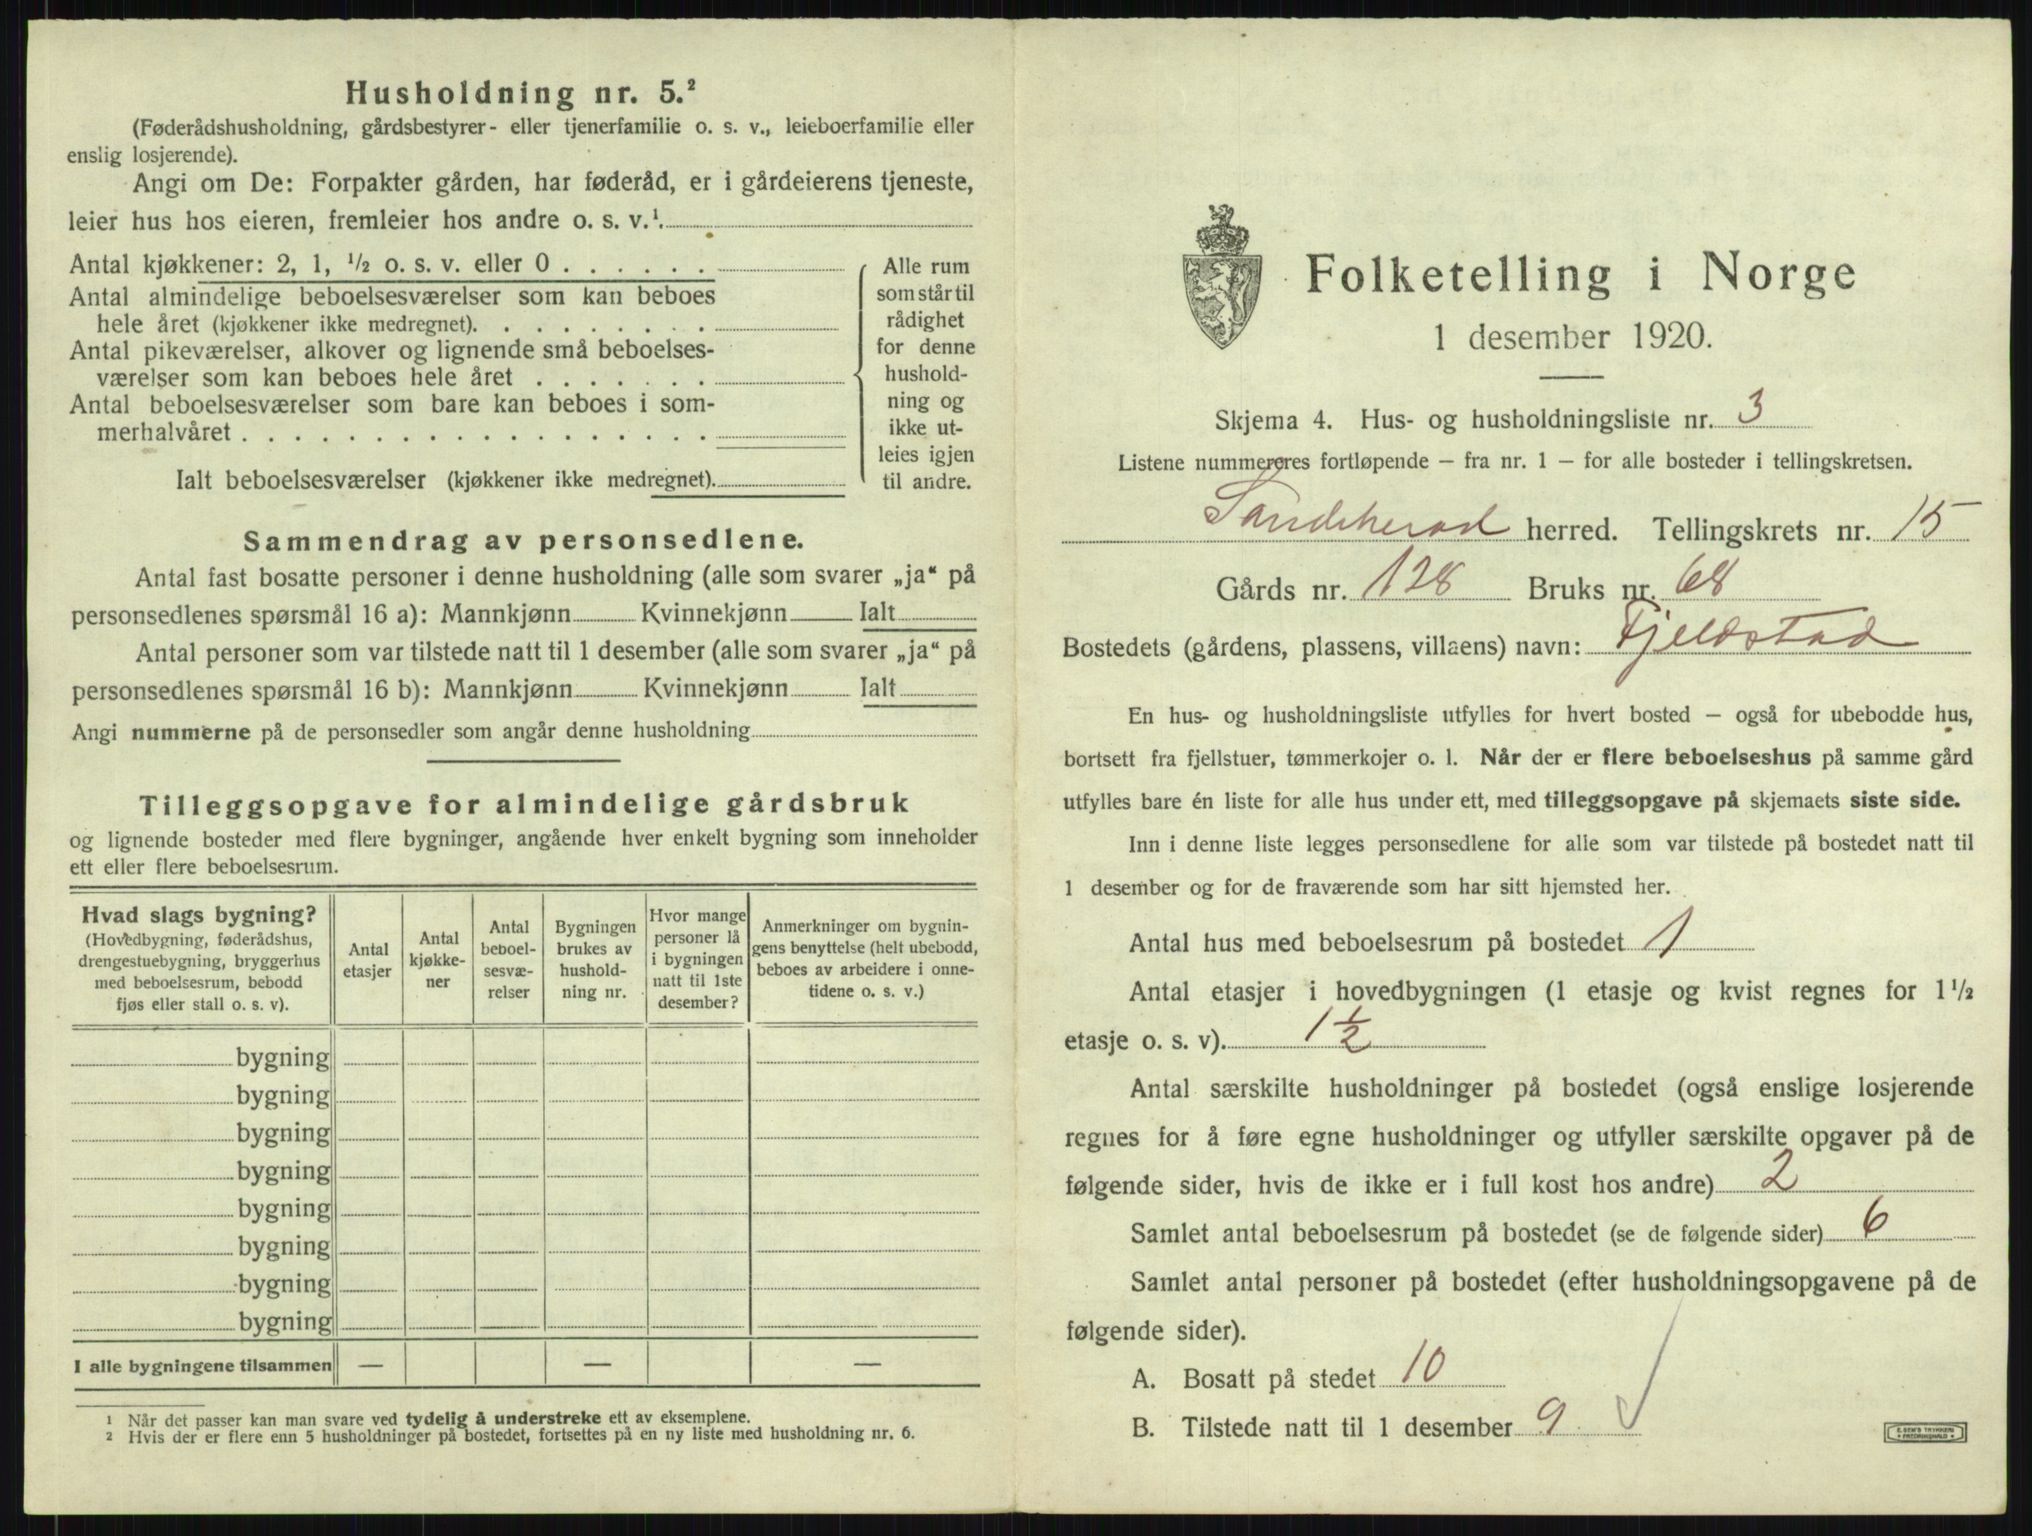 Husholdning nr. 5.²
(Føderådshusholdning, gårdsbestyrer- eller tjenerfamilie o. s. v., leieboerfamilie eller
enslig losjerende).
Angi om De: Forpakter gården, har føderåd, er i gårdeierens tjeneste,
leier hus hos eieren, fremleier hos andre o. s. v.¹.
Antal kjøkkener: 2, 1, ½ o. s. v. eller 0 . . . . . .
Antal almindelige beboelsesværelser som kan beboes
hele året (kjøkkener ikke medregnet). . . . . . . . .
Antal pikeværelser, alkover og lignende små beboelses-
værelser som kan beboes hele året . . . . . . .
Antal beboelsesværelser som bare kan beboes i som-
merhalvåret . . . . . . . . . . . . . . . . . .
Ialt beboelsesværelser (kjøkkener ikke medregnet).
Alle rum
som står til
rådighet
for denne
hushold-
ning og
ikke ut-
leies igjen
til andre.
Sammendrag av personsedlene.
Antal fast bosatte personer i denne husholdning (alle som svarer „ja“ på
personsedlenes spørsmål 16 a): Mannkjønn Kvinnekjønn Ialt
Antal personer som var tilstede natt til 1 desember (alle som svarer „ja“ på
personsedlenes spørsmål 16 b): Mannkjønn Kvinnekjønn Ialt
Angi nummerne på de personsedler som angår denne husholdning
Tilleggsopgave for almindelige gårdsbruk
og lignende bosteder med flere bygninger, angående hver enkelt bygning som inneholder
ett eller flere beboelsesrum.
Hvad slags bygning?
(Hovedbygning, føderådshus,
drengestuebygning, bryggerhus
med beboelsesrum, bebodd
fjøs eller stall o. s. v).
Antal
etasjer
Antal
kjøkke-
ner
Antal
beboel-
sesvæ-
relser
Bygningen
brukes av
hushold-
ning nr.
Hvor mange
personer lå
i bygningen
natt til 1ste
desember?
Anmerkninger om bygnin-
gens benyttelse (helt ubebodd,
beboes av arbeidere i onne-
tidene o. s. v.)
bygning
bygning
bygning
bygning
bygning
bygning
bygning
bygning
I alle bygningene tilsammen — — —
¹ Når det passer kan man svare ved tydelig å understreke ett av eksemplene.
² Hvis der er flere enn 5 husholdninger på bostedet, fortsettes på en ny liste med husholdning nr. 6.
Folketelling i Norge
1 desember 1920.
Skjema 4. Hus- og husholdningsliste nr. 3
Listene nummereres fortløpende – fra nr. 1 – for alle bosteder i tellingskretsen.
Sandeherad herred. Tellingskrets nr. 15
Gårds nr. 128 Bruks nr. 68
Bostedets (gårdens, plassens, villaens) navn: Fjeldstad
En hus- og husholdningsliste utfylles for hvert bosted – også for ubebodde hus,
bortsett fra fjellstuer, tømmerkojer o. l. Når der er flere beboelseshus på samme gård
utfylles bare én liste for alle hus under ett, med tilleggsopgave på skjemaets siste side.
Inn i denne liste legges personsedlene for alle som var tilstede på bostedet natt til
1 desember og for de fraværende som har sitt hjemsted her.
Antal hus med beboelsesrum på bostedet 1
Antal etasjer i hovedbygningen (1 etasje og kvist regnes for 1½
etasje o. s. v). 1½
Antal særskilte husholdninger på bostedet (også enslige losjerende
regnes for å føre egne husholdninger og utfyller særskilte opgaver på de
følgende sider, hvis de ikke er i full kost hos andre) 2
Samlet antal beboelsesrum på bostedet (se de følgende sider) 6
Samlet antal personer på bostedet (efter husholdningsopgavene på de
følgende sider).
A. Bosatt på stedet 10
B. Tilstede natt til 1 desember 9
E. SEM'S TRYKKERI
FREDRIKSHALD